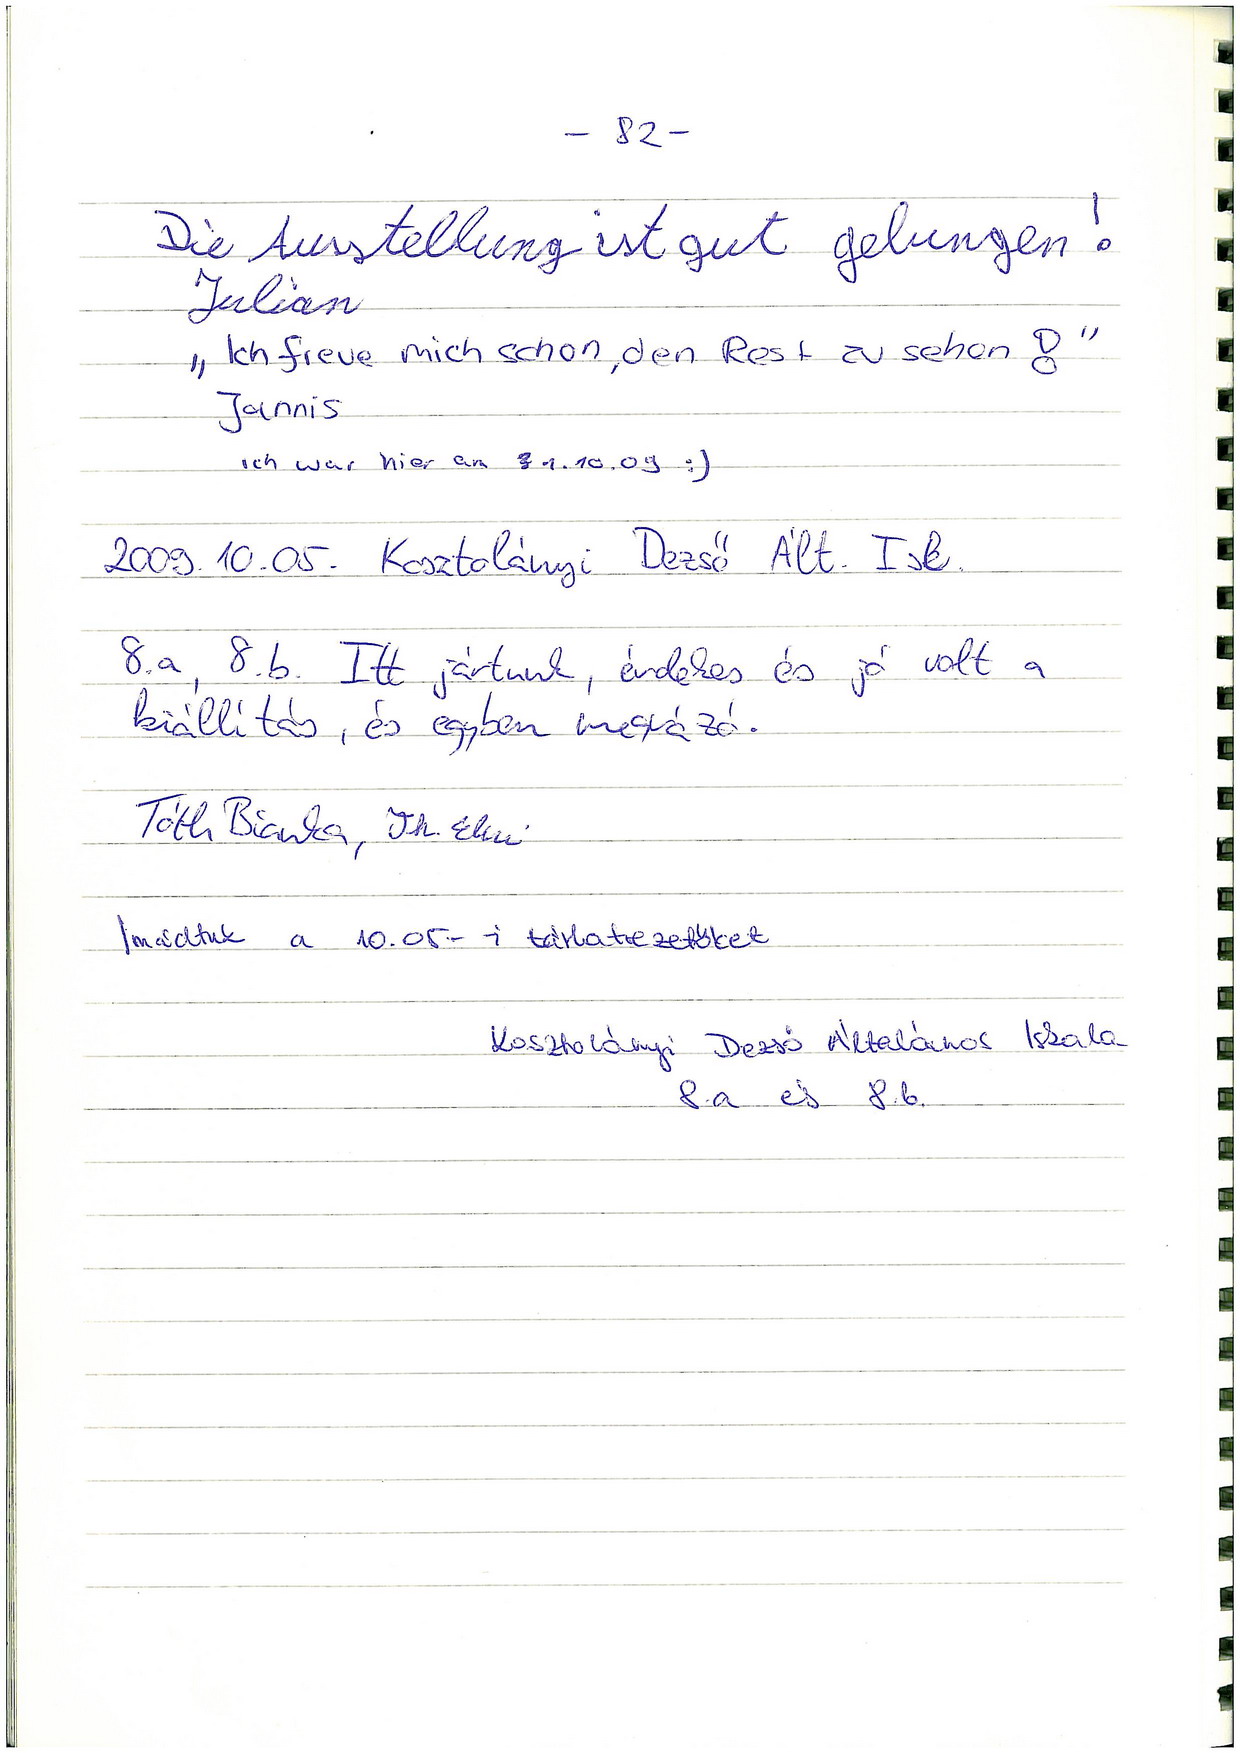 - 82 -
Die Ausstellung ist gut gelungen!
Julian
„Ich freue mich schon, den Rest zu sehen!"
Jannis
ich war hier am 1.10.09 :)
2009.10.05. Kosztolányi Dezső Ált. Isk.
8.a, 8.b. Itt jártunk, érdekes és jó volt a
kiállítás, és egyben megrázó.
Tóth Bianka,
Imádtuk a 10.05-i tárlatvezetőket
Kosztolányi Dezső Általános Iskola
8.a és 8.b.